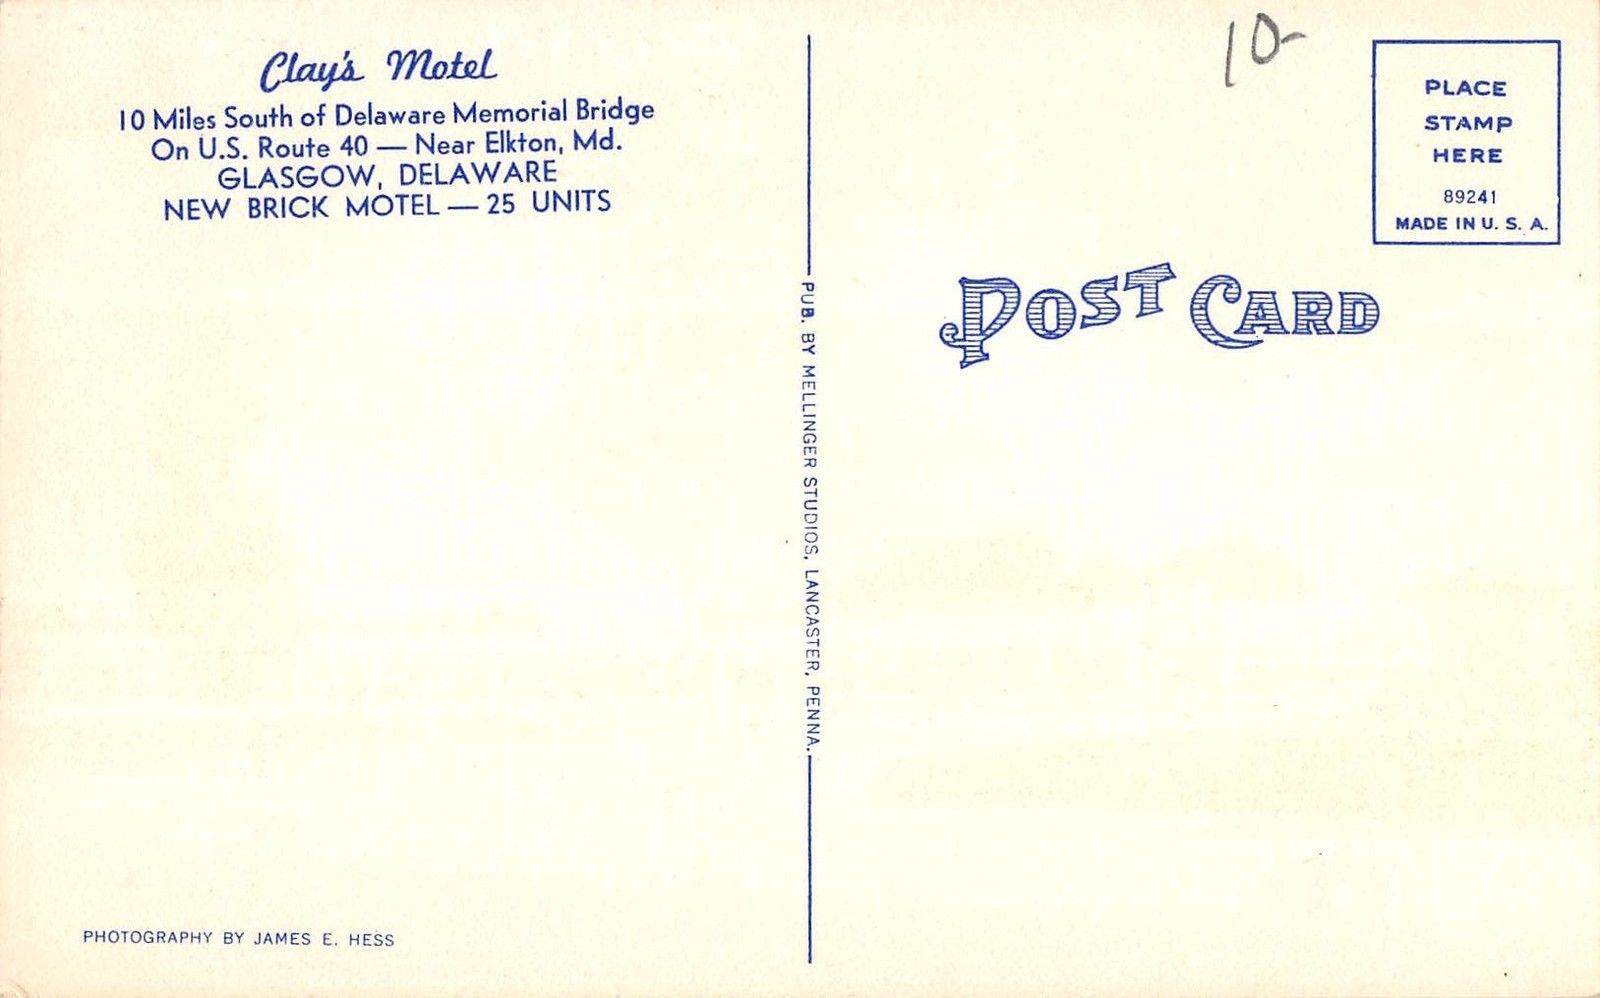 Clay's Motel
10 Miles South of Delaware Memorial Bridge
On U.S. Route 40 — Near Elkton, Md.
GLASGOW, DELAWARE
NEW BRICK MOTEL — 25 UNITS
PHOTOGRAPHY BY JAMES E. HESS
PUB. BY MELLINGER STUDIOS, LANCASTER, PENNA.
10-
PLACE
STAMP
HERE
89241
MADE IN U. S. A.
POST CARD